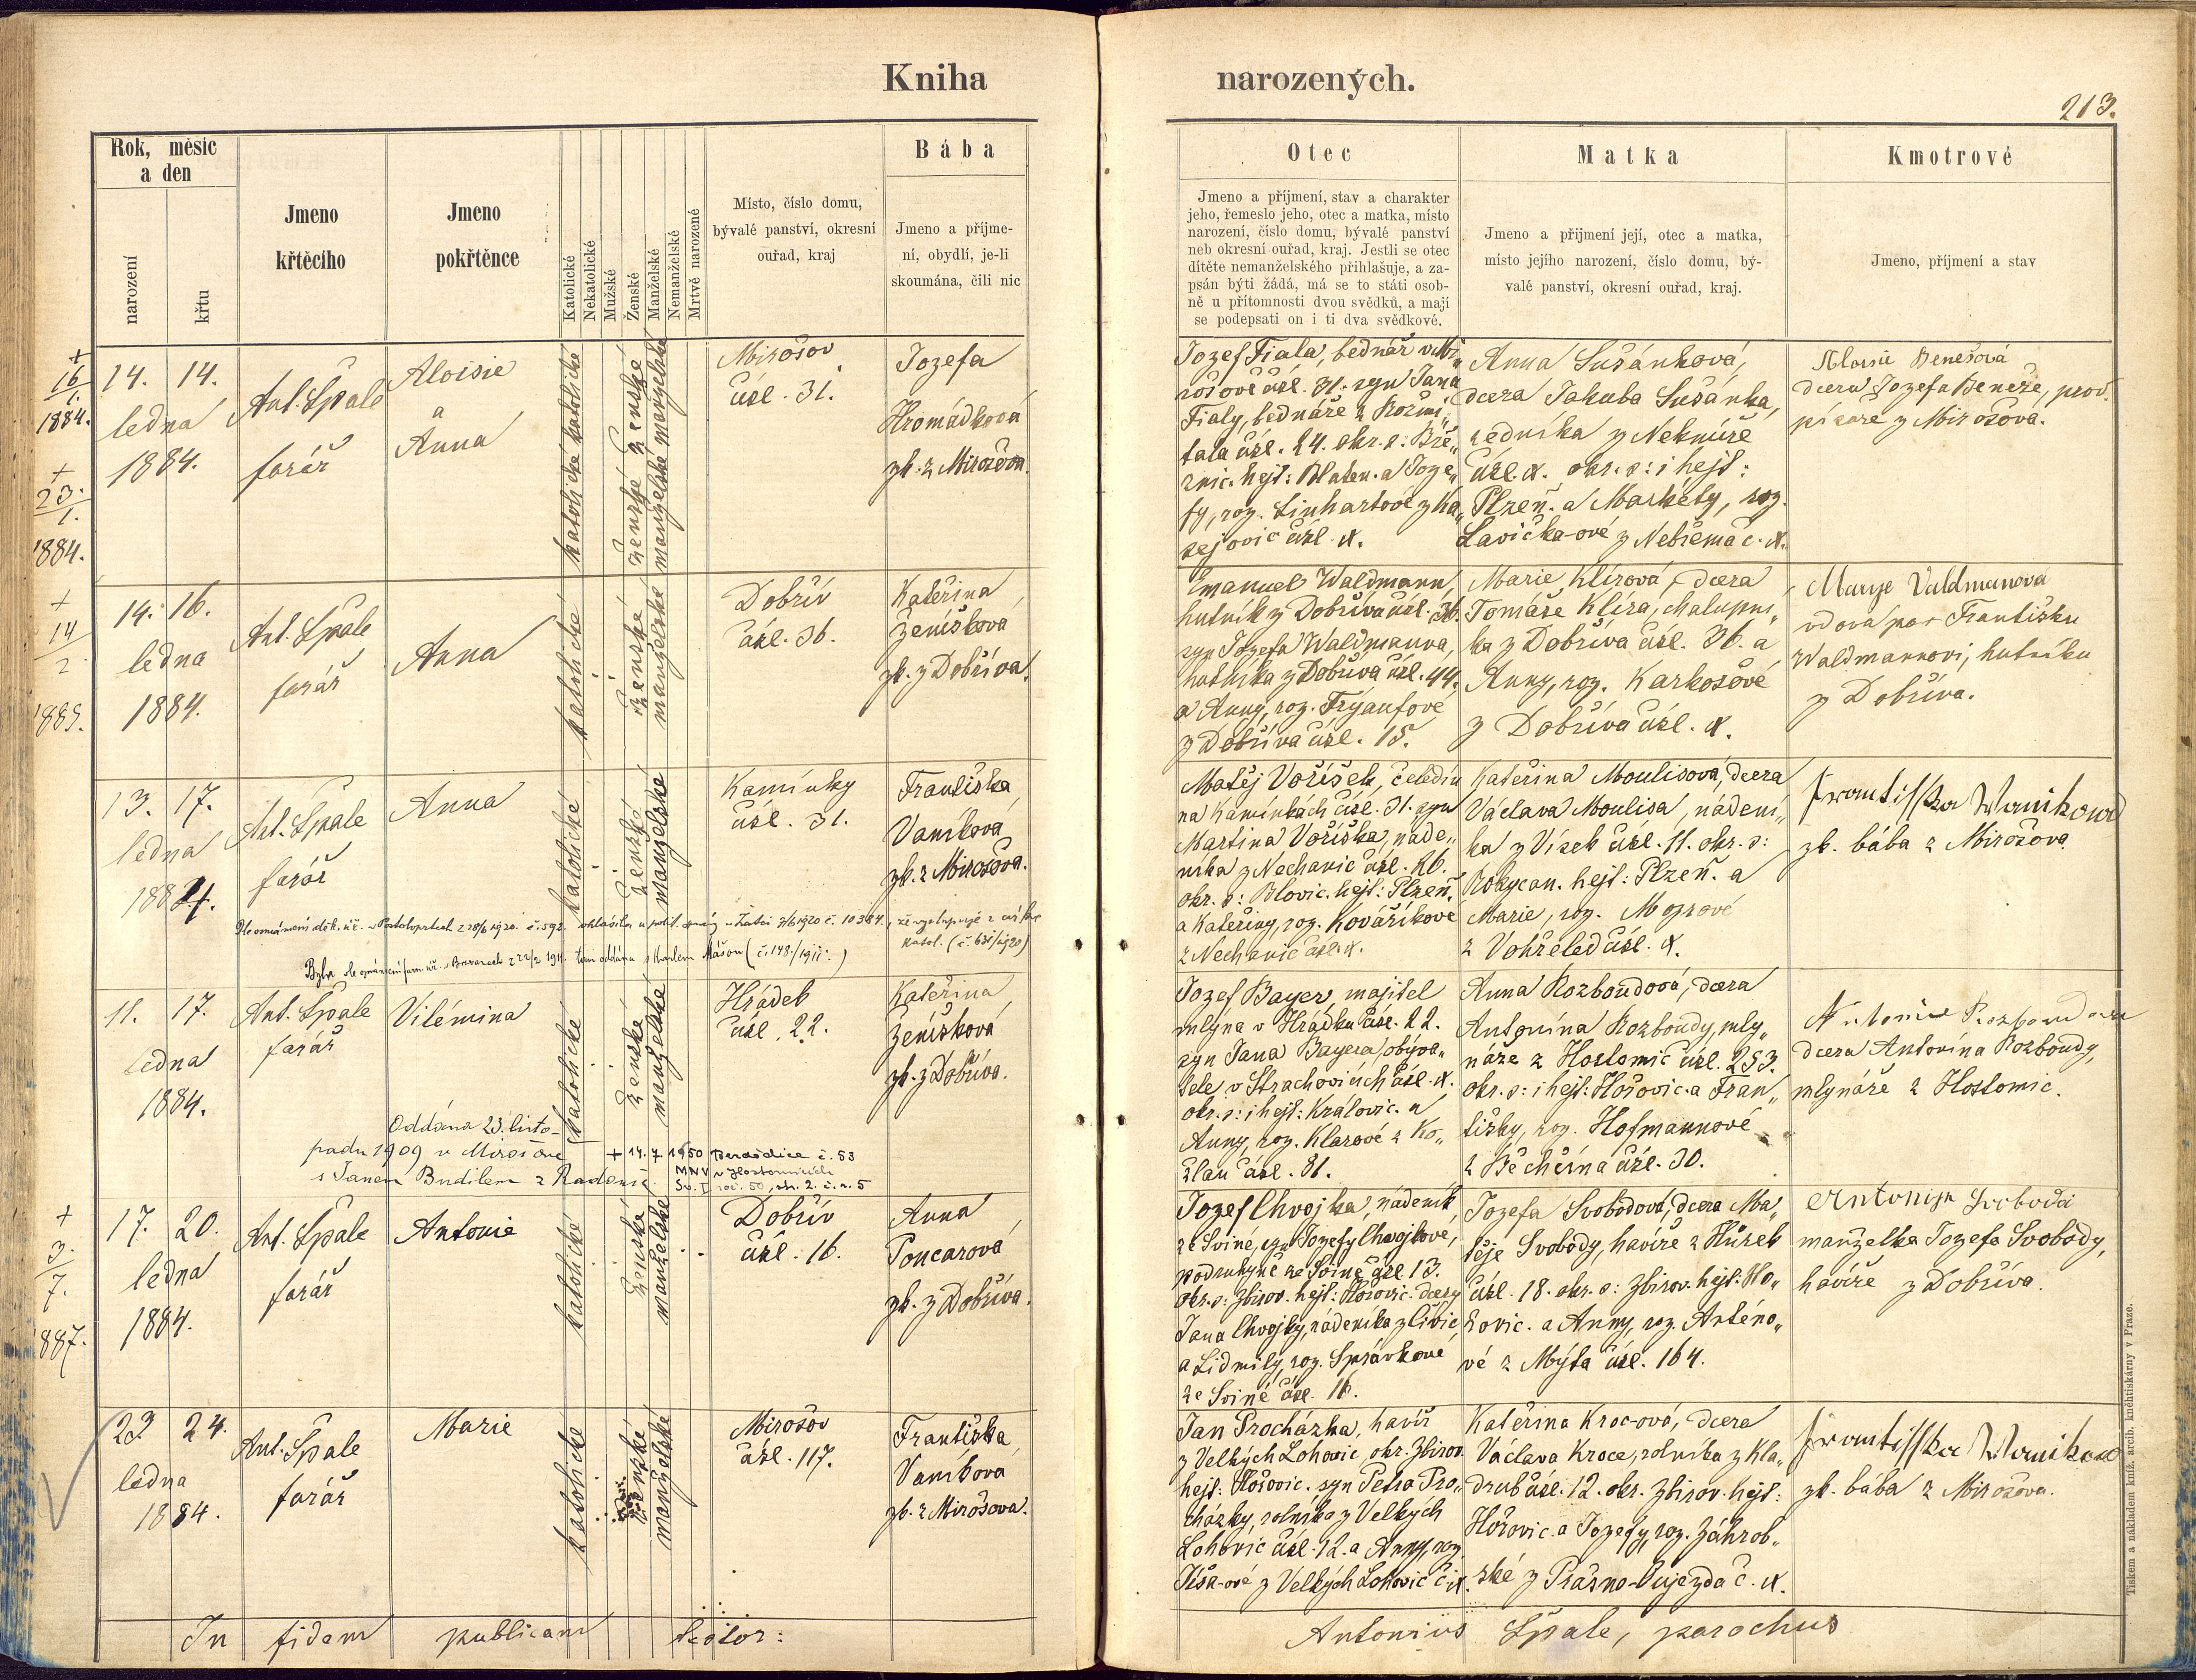 Kniha narozených.
213.
Rok, měsíc
a den
narození
křtu
Jmeno
křtěcího
Jmeno
pokřtěnce
Katolické
Nekatolické
Mužské
Ženské
Manželské
Nemanželské
Mrtvě narozené
Místo, číslo domu,
bývalé panství, okresní
ouřad, kraj
Bába
Jmeno a příjme-
ní, obydlí, je-li
skoumána, čili nic
Otec
Jmeno a příjmení, stav a charakter
jeho, řemeslo jeho, otec a matka, místo
narození, číslo domu, bývalé panství
neb okresní ouřad, kraj. Jestli se otec
dítěte nemanželského přihlašuje, a za-
psán býti žádá, má se to státi osob-
ně u přítomnosti dvou svědků, a mají
se podepsati on i ti dva svědkové.
Matka
Jmeno a přijmení její, otec a matka,
místo jejího narození, číslo domu, bý-
valé panství, okresní ouřad, kraj.
Kmotrové
Jmeno, příjmení a stav
+
16
1.
1884.
+
23.
1.
1884.
14. 14.
ledna
1884.
Ant. Špale
farář
Aloisie
a
Anna
katolické katolické
ženské ženské
manželské manželské
Mirošov
čísl. 31.
Jozefa
Hromádková
zk. z Mirošova.
Jozef Fiala, bednář v Mi„
rošově čísl. 31. syn Jana
Fialy, bednáře z Rožmi„
tala čísl. 24. okr. s: Bře„
znic. hejt: Blaten. a Joze„
fy, roz. Linhartové z Ka„
sejovic čísl. x.
Anna Sušánková,
dcera Jakuba Sušánka,
zedníka z Nekníře
čísl. x. okr. s: i hejt:
Plzeň. a Markéty, roz.
Lavička-ové z Nebřema č. x.
Aloisie Benešová
dcera Jozefa Beneše,
z Mirošova.
+
14
2
1885.
14. 16.
ledna
1884.
Ant. Špale
farář
Anna
katolické
ženské
manželské
Dobřív
čísl. 36.
Kateřina
Ženíšková
zk. z Dobříva.
Emanuel Waldmann,
hutník z Dobříva čísl. 36.
syn Jozefa Waldmanna,
hutníka z Dobříva čísl. 44.
a Anny, roz. Frýaufove
z Dobříva čísl. 15.
Marie Klírová, dcera
Tomáše Klíra, chalupní„
ka z Dobříva čísl. 36. a
Anny, roz. Karkošové
z Dobříva čísl. x.
Marye Valdmanova
vdova po Františku
Waldmannovi, hutníku
z Dobříva.
13. 17.
ledna
1884.
Ant. Špale
farář
Anna
katolické
ženské
manželské
Kamínky
čísl. 31.
Františka
Vaníková
zk. z Mirošova.
katol. (č. 631/1920)
Matěj Voříšek, čeledín
na Kamínkách čísl. 31. syn
Martina Voříška, náde„
níka z Nechanic čísl. 26.
okr. s: Blovic. hejt: Plzeň.
a Kateřiny, roz. Kováříkové
z Nechanic čísl. x.
Kateřina Moulisová, dcera
Václava Moulisa, nádení„
ka z Vísek čísl. 11. okr. s:
Rokycan. hejt: Plzeň. a
Marie, roz. Mozrové
z Vohřeled čísl. x.
Frantisska Wanikowa
zk. bába z Mirošova
11. 17.
ledna
1884.
Ant. Špale
farář
Vilémina
katolické
ženské
manželské
Hrádek
čísl. 22.
Kateřina
Ženíšková
zk. z Dobříva.
Oddána 23. listo-
padu 1909 v Mirošově
s Janem Budilem z Radčnic.
+ 14. 7 1950 Beroldice č. 53
MNV v Hostomicích
Sv. I roč. 50, str. 2. č. ř. 5
Jozef Bayer, majitel
mlýna v Hrádku čísl. 22.
syn Jana Bayera, obýva„
tele v Strachovicích čísl. x.
okr. s: i hejt: Královic. a
Anny, roz. Klarové z Ko„
zlan čísl. 81.
Anna Rozboudová, dcera
Antonína Rozboudy, mly„
náře z Hostomic čísl. 253.
okr. s: i hejt: Hořovic. a Fran„
tišky, roz. Hofmannové
z Běchčína čísl. 30.
Antonie Rozboudova
dcera Antonína Rozboudy,
mlynáře z Hostomic.
+
3.
7.
1887.
17. 20.
ledna
1884.
Ant. Špale
farář
Antonie
katolické
ženské
manželské
Dobřív
čísl. 16.
Anna
Poncarová
zk. z Dobříva.
Jozef Chvojka, nádeník
ze Sviné, syn Jozefy Chvojkové,
podruhyně ze Sviné čísl. 13.
okr. s: Zbirov. hejt: Hořovic. dcery
Jana Chvojky, nádeníka z Civic
a Lidmily, roz. Správkove
ze Sviné čísl. 16.
Jozefa Svobodová, dcera Ma„
těje Svobody, havíře z Hůrek
čísl. 18. okr. s: Zbirov. hejt: Ho„
řovic. a Anny, roz. Anténo„
vé z Mýta čísl. 164.
Antonija Svoboda
manželka Jozefa Svobody,
havíře z Dobříva.
23 24.
ledna
1884.
Ant. Špale
farář
Marie
katolické
ženské
manželské
Mirošov
čísl. 117.
Františka
Vaníkova
zk. z Mirošova.
Jan Procházka, havíř
z Velkých Lohovic okr. Zbirov
hejt: Hořovic. syn Petra Pro„
cházky, rolníka z Velkých
Lohovic čísl. 12. a Anny, roz.
Tíša-ové z Velkých Lohovic č. x.
Kateřina Kroc-ová, dcera
Václava Kroce, rolníka z Kla„
drub čísl. 12. okr. Zbirov. hejt:
Hořovic. a Jozefy, roz. Záhrob„
ské z Prašno-Oujezda č. x.
Frantisska Wanikowa
zk. bába z Mirošova.
In fidem publicam testor:
Antonius Špale, parochus
Tiskem a nákladem kníž. arcib. knihtiskárny v Praze.